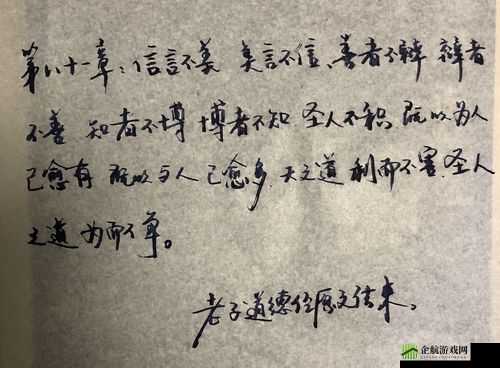 第八十一章：信言不美 美言不信、善者不辩 辩者
不善 知者不博 博者不知 圣人不积 既以为人
己愈有 既以与人 己愈多.天之道 利而不害.圣人
之道 为而不争。
老子道德经原文结束。
企航游戏网